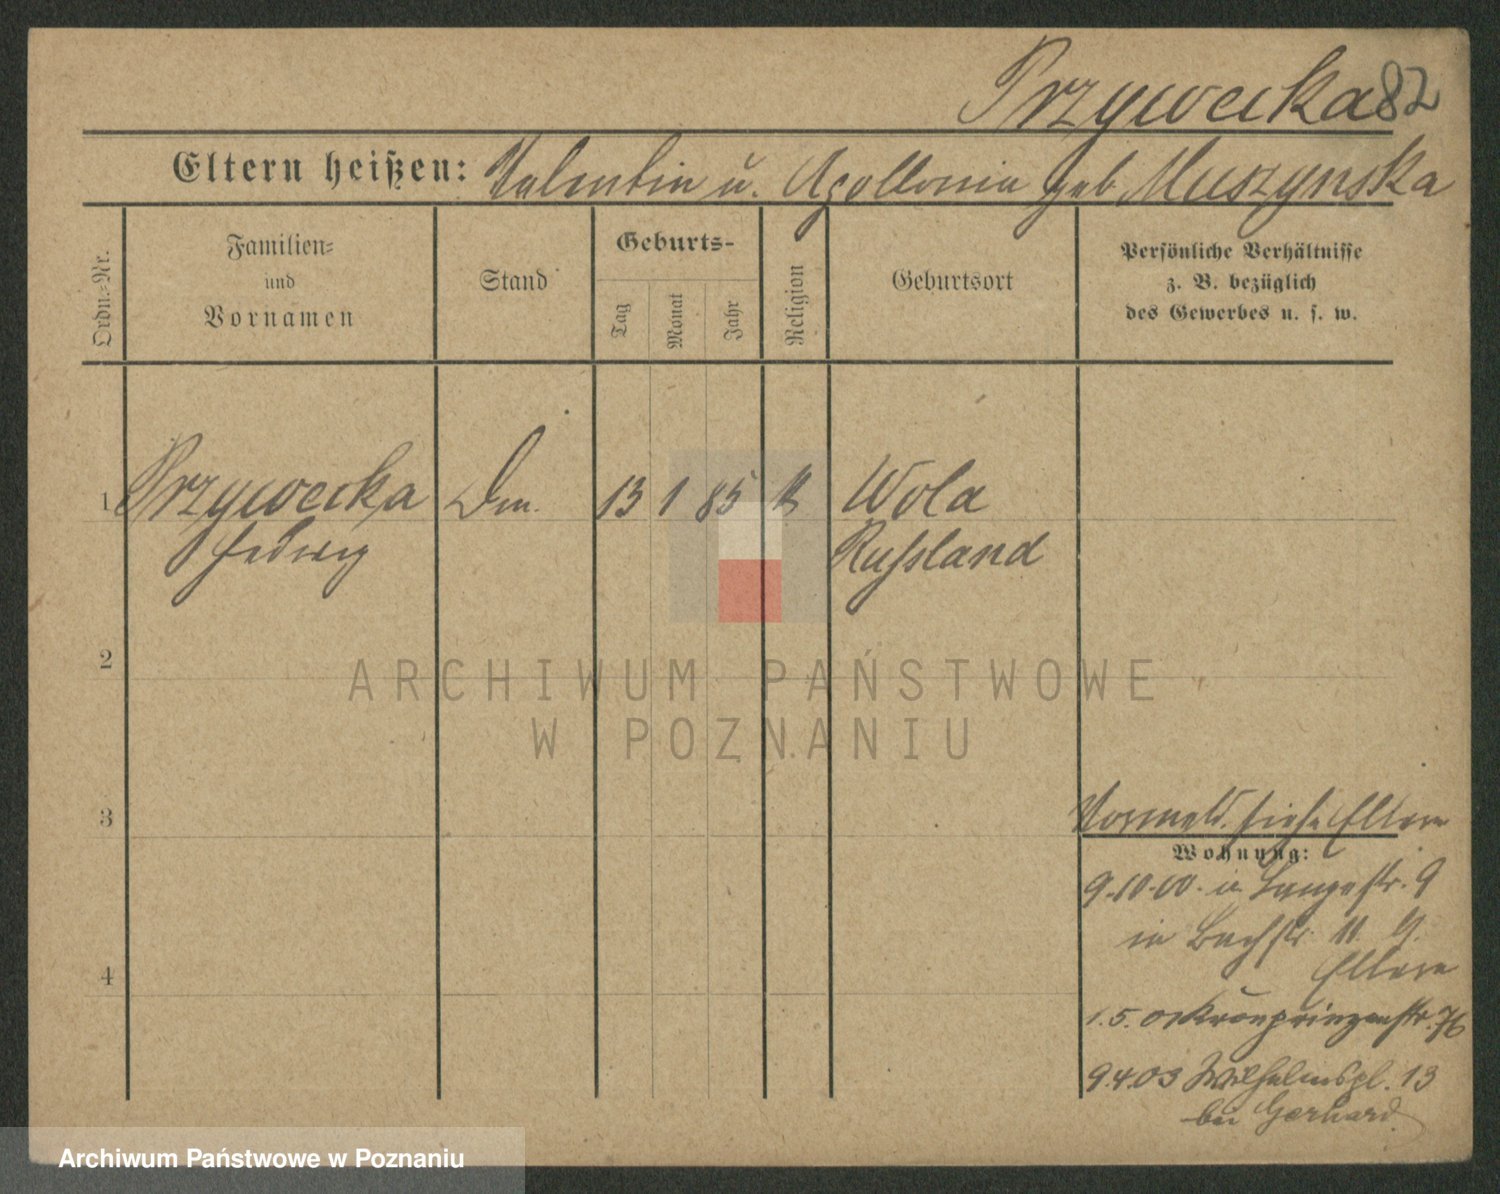 Przywecka 82
Eltern heißen: Valentin u. Apollonia geb. Muszynska
Ordn.-Nr.
Familien-
und
Vornamen
Stand
Geburts-
Tag
Monat
Jahr
Religion
Geburtsort
Persönliche Verhältnisse
z. B. bezüglich
des Gewerbes u. s. w.
1 Przywecka Dm. 13 1 85 K Wola
Hedwig Russland
2
ARCHIWUM PAŃSTWOWE
W POZNANIU
3
Vormeld. siehe Eltern
Wohnung:
9.10.00. in Langestr. 9
in Bachstr. 11
Eltern
4
1.5.01 Kronprinzenstr. 76
9.4.03 Wilhelmspl. 13
bei Gerhard.
Archiwum Państwowe w Poznaniu